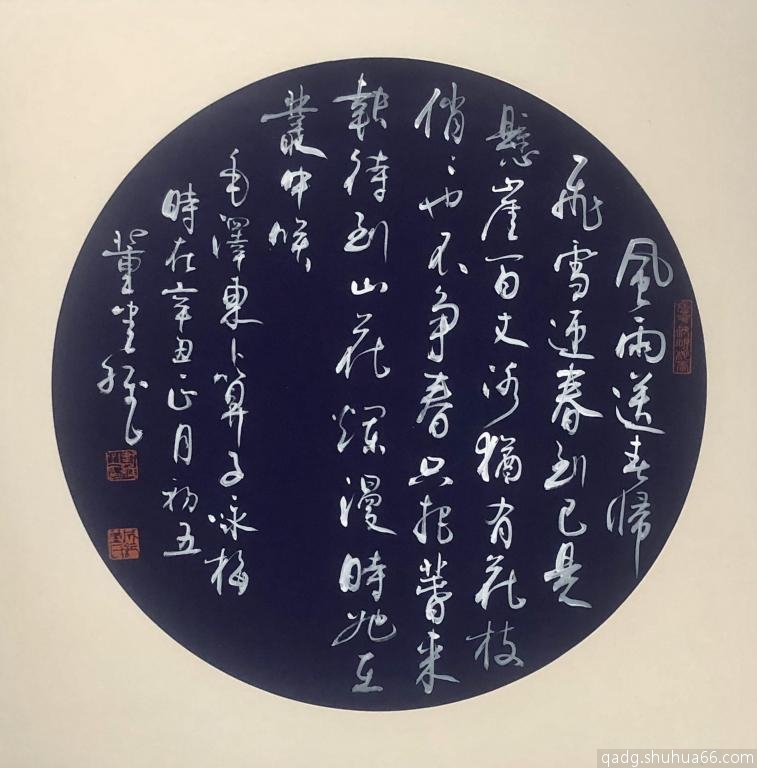 風雨送春歸
飛雪迎春到已是
懸崖百丈冰猶有花枝
俏〻也不爭春只把萅來
報待到山花爛漫時她在
叢中咲
毛澤東卜算子咏梅
時在辛丑正月初五
董
qadg.shuhua66.com